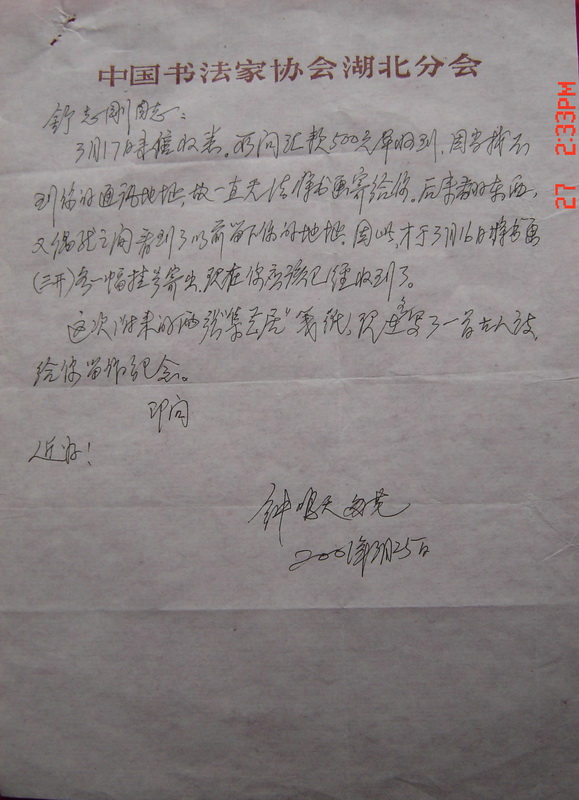 中国书法家协会湖北分会
舒志刚同志：
3月17日来信收悉。所问汇款500元早收到，因当找不
到你的通讯地址，故一直无法将书画寄给你。后来翻东西，
又偶然之间看到了以前留下你的地址，因此，才于3月16日将书画
（三开）各一幅挂号寄出，现在你应该已经收到了。
这次寄来的两张"集云居"笺纸，现各写了一首古人诗，
给你留作纪念。
即问
近好！
钟鸣天
2001年3月25日
27 2:33PM